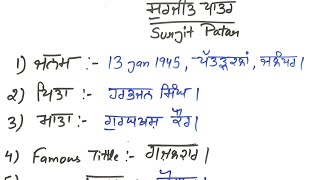 ਸੁਰਜੀਤ ਪਾਤਰ
Surjit Patar
1) ਜਨਮ :- 13 Jan 1945, ਪੱਤੜਕਲਾਂ, ਜਲੰਧਰ।
2) ਪਿਤਾ :- ਹਰਭਜਨ ਸਿੰਘ।
3) ਮਾਤਾ :- ਗੁਰਬਖਸ਼ ਕੌਰ।
4) Famous Tittle :- ਗਜ਼ਲਕਾਰ।